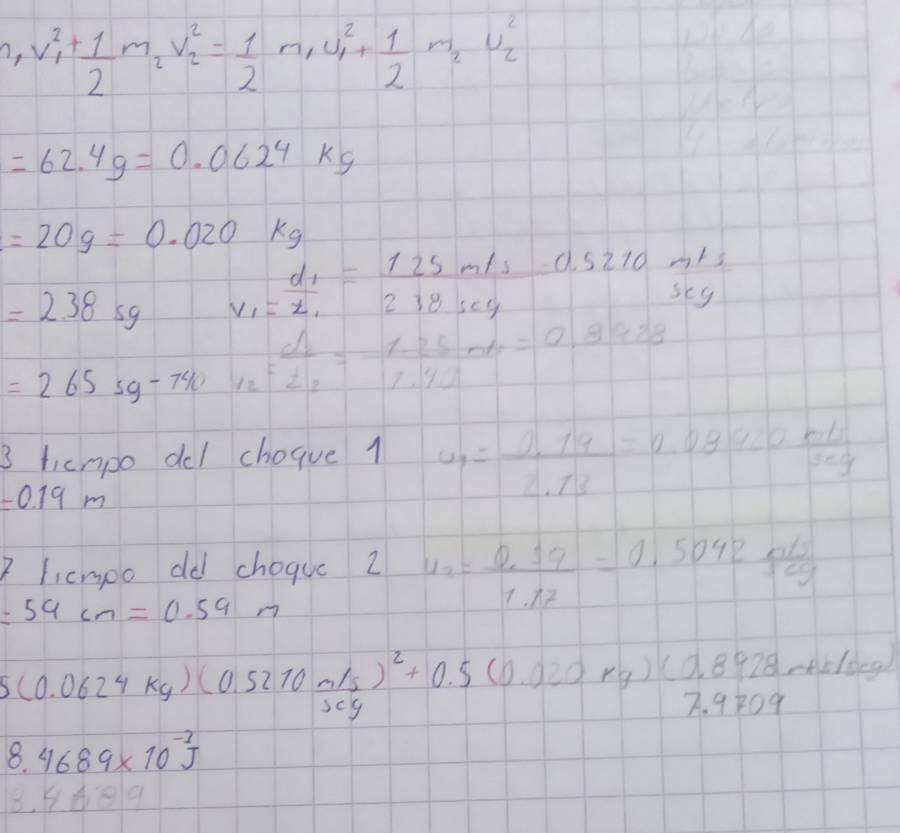 1 v₁² + 1/2 m₂ v₂² = 1/2 m₁ u₁² + 1/2 m₂ u₂²
= 62.4g = 0.0624 Kg
= 20g = 0.020 Kg
= 2.38 sg v₁ = d₁/t₁ = 1.25 mts/2.38 seg = 0.5210 mts/seg
= 2.65 sg - 1.40 v₂ = d₂/t₂ = 1.25 mt/1.40 = 0.8928
3 tiempo del choque 1 u₁ = 0.19/2.13 = 0.08920 mts/seg
= 0.19 m
7 tiempo del choque 2 u₂ = 0.59/1.17 = 0.5042 mts/seg
= 59 cm = 0.59 m
5(0.0624 Kg)(0.5210 mts/seg)² + 0.5 (0.020 Kg)(0.8928 mts/seg)
7.9709
8.4689 x 10⁻³ J
8.4689